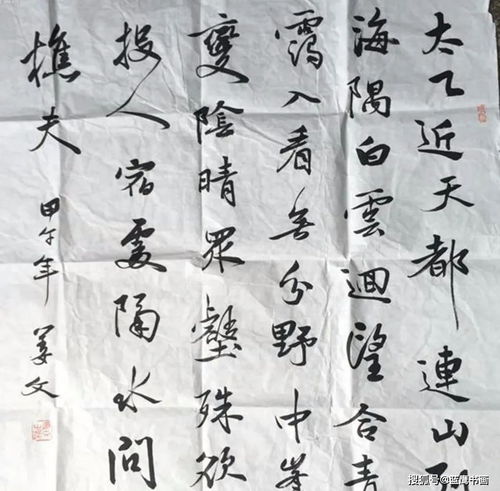 太乙近天都連山到
海隅白雲迴望合青
靄入看無分野中峯
變陰晴眾壑殊欲
投人宿處隔水問
樵夫
甲午年 姜文
搜狐号@